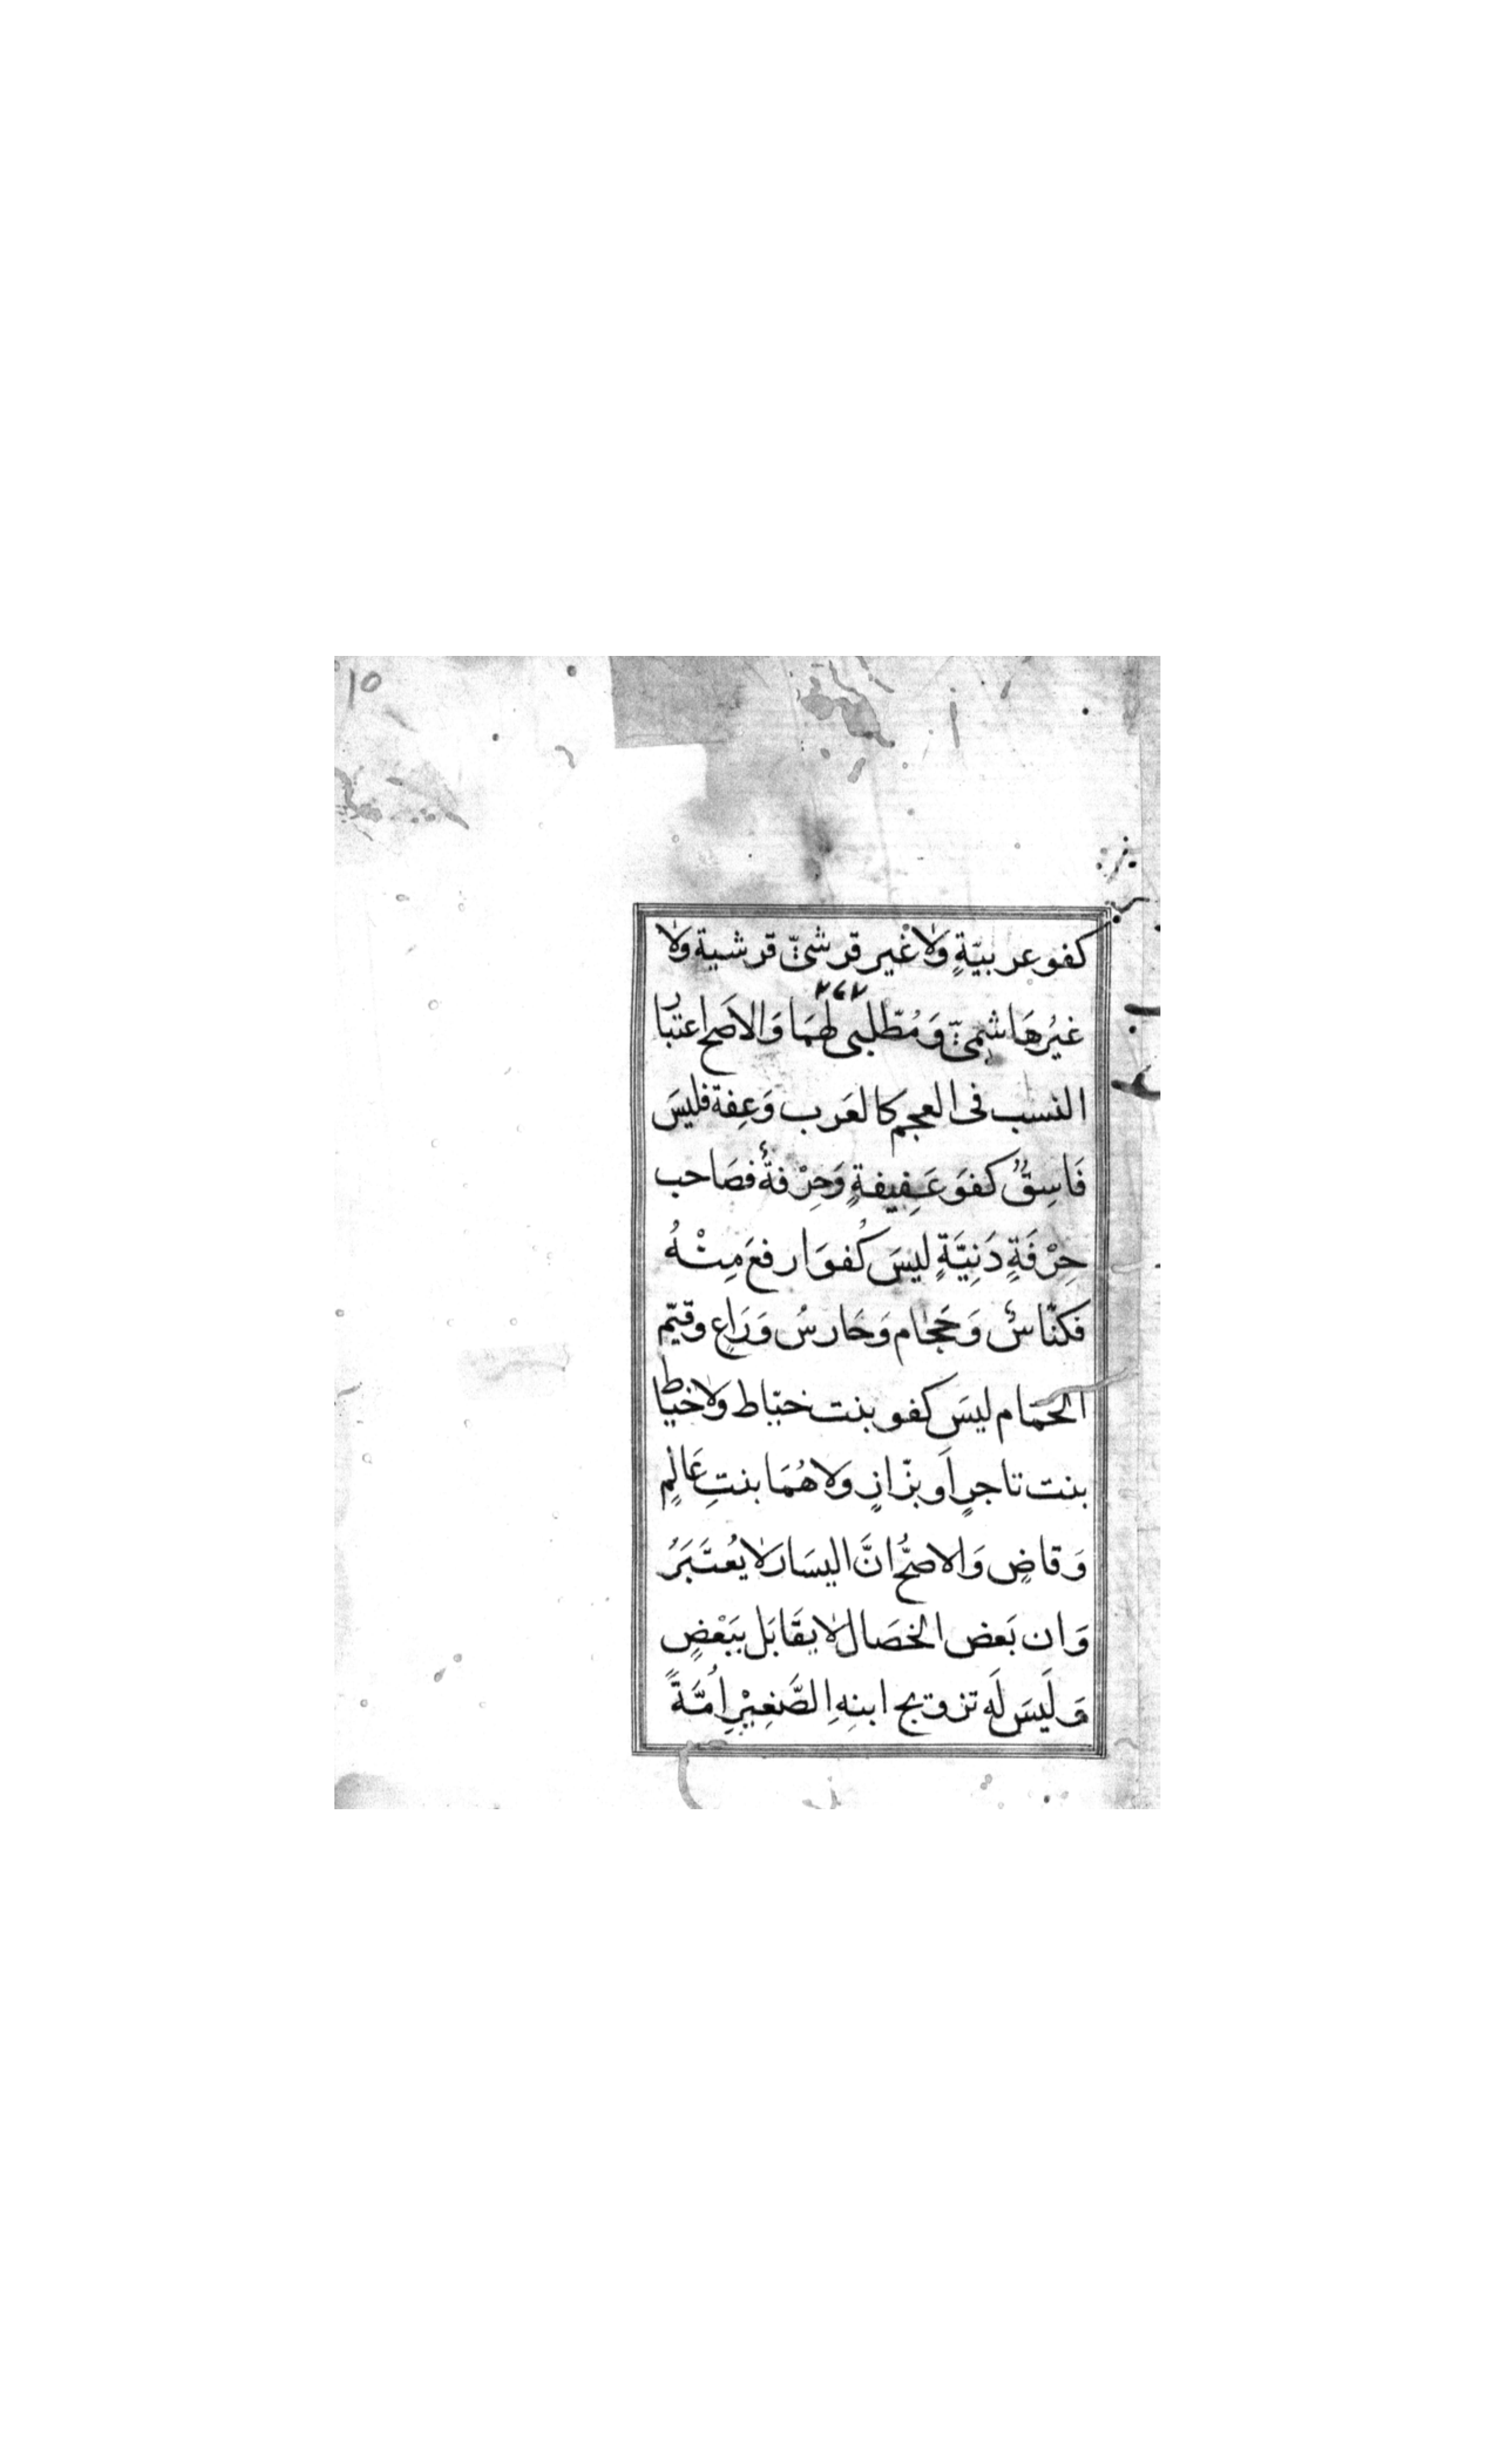 ١٥
كفو عربيّةٍ ولا غير قرشىّ قرشية ولا
غيُر هَاشِمىّ وَمُطّلبى لهمَا وَالاَصح اعتبار
النسب فى العجم كالعَرب وَعِفة فليسَ
فَاسِقٌ كفوَ عَفِيفةٍ وَحِرْفةٌ فصَاحب
حِرْفَةٍ دَنِيَّةٍ ليسَ كُفوَ ارفعَ مِنْهُ
فَكنّاسٌ وَحَجام وَحَارسُ وَرَاعٍ وقيّم
الحمّام ليسَ كفو بنت خيّاط وَلا خيّاط
بنت تاجرٍ اَو بزّازٍ ولا هُمَا بنتِ عَالمٍ
وَقاضٍ وَالاصحُّ انَّ اليسَار لا يعُتَبَرُ
وَان بَعض الخصَال لا يقَابَل ببَعْضٍ
وَليَسَ لَه تزويج ابنِهِ الصَّغِيْرِ اَمَةً